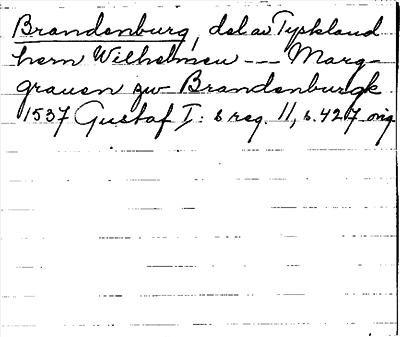 Brandenburg, del av Tyskland
hern Wilhelmen --- Marg-
grauen zw Brandenburgk
1537 Gustaf I: s reg. 11, s. 427 orig